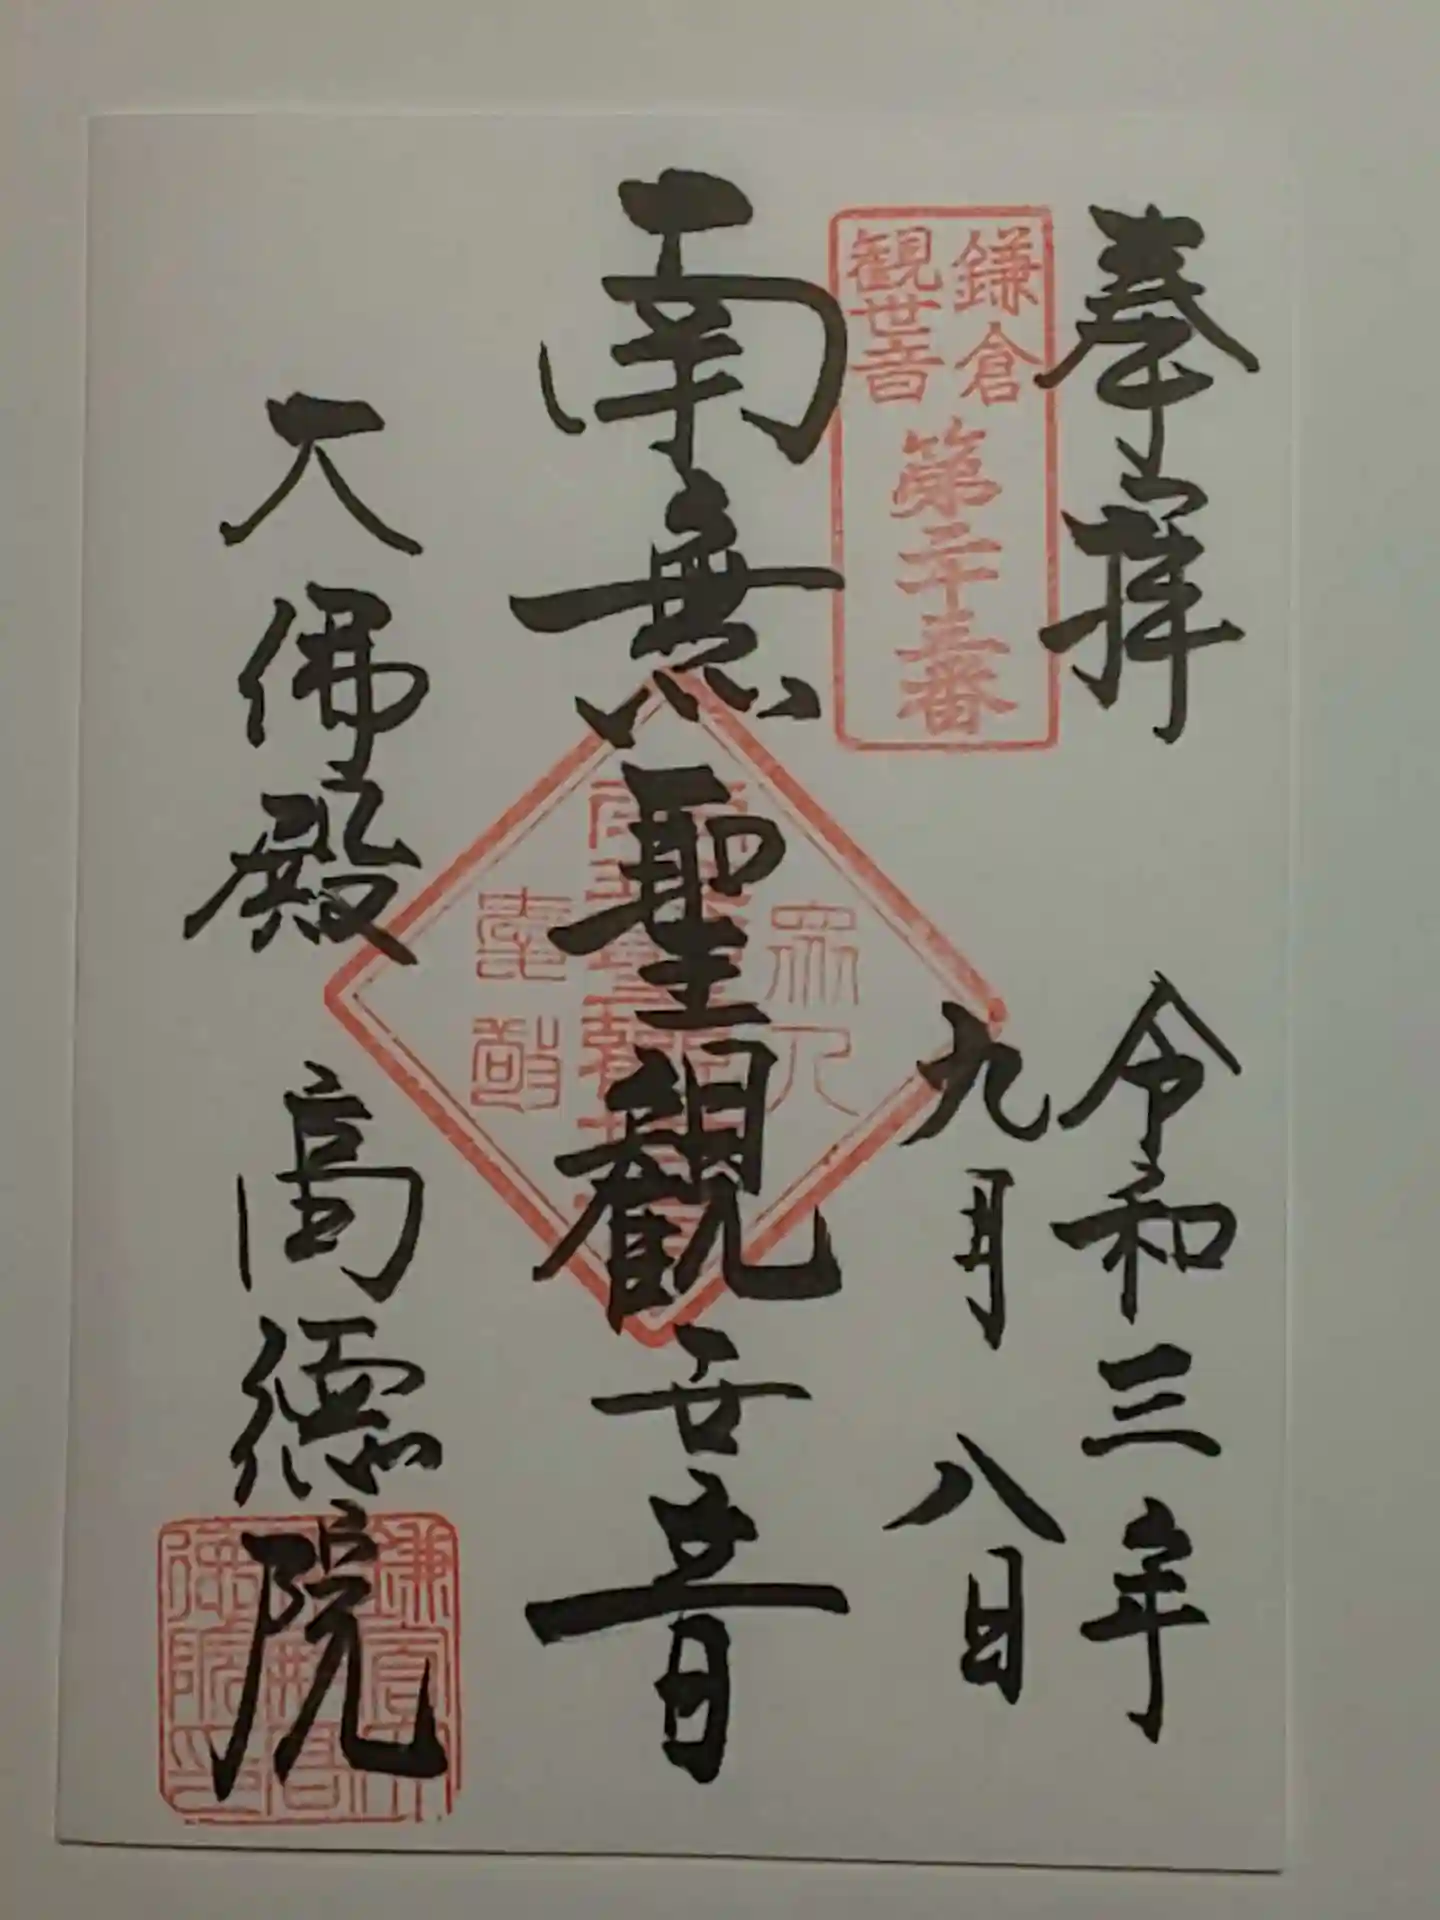 奉拝
令和三年
九月八日
鎌倉
観世音
第二十三番
南無聖観世音
衆人
愛敬
大佛殿
高徳院